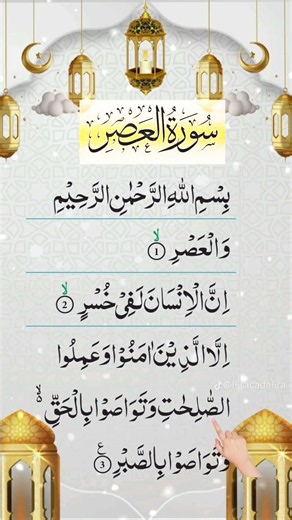 سُورَةُ الْعَصْرِ
بِسْمِ اللهِ الرَّحْمٰنِ الرَّحِيْمِ
وَالْعَصْرِ ۙ ①
اِنَّ الْاِنْسَانَ لَفِيْ خُسْرٍ ۙ ②
اِلَّا الَّذِيْنَ اٰمَنُوْا وَعَمِلُوا
الصّٰلِحٰتِ وَتَوَاصَوْا بِالْحَقِّ ۙ
وَتَوَاصَوْا بِالصَّبْرِ ۧ ③